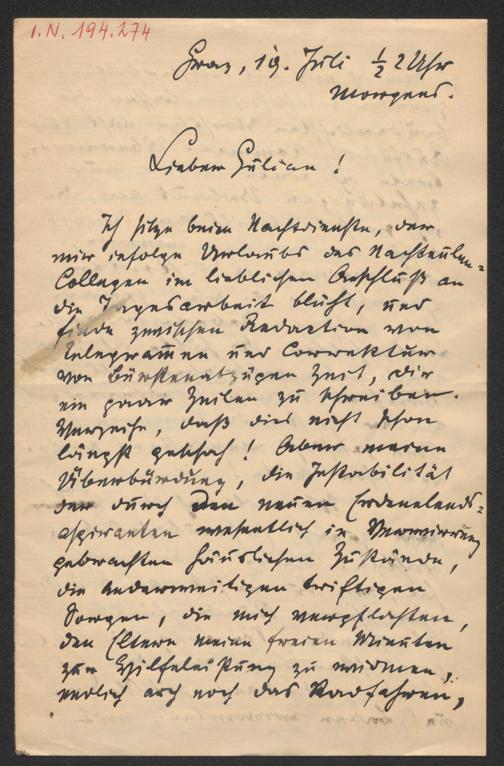 I.N. 194.274
Graz, 19. Juli ½ 2 Uhr
Morgens.
Lieber Gilian!
Ich sitze beim Nachtdienste, der
mir infolge Urlaubs des Nachteulen-
Collegen im lieblichen Anschluß an
die Tagesarbeit blüht, und
finde zwischen Redaction von
Telegrammen und Correktur
von Bürstenabzügen Zeit, dir
ein paar Zeilen zu schreiben.
Verzeihe, daß dies nicht schon
längst geschah! Aber meine
Überbürdung, die Instabilität
der durch den neuen Erdenelends-
aspiranten wesentlich in Verwirrung
gebrachten häuslichen Zustände,
die anderweitigen triftigen
Sorgen, die mich verpflichten,
den Eltern meine freien Minuten
zur Hilfeleistung zu widmen,
endlich auch noch das Radfahren,